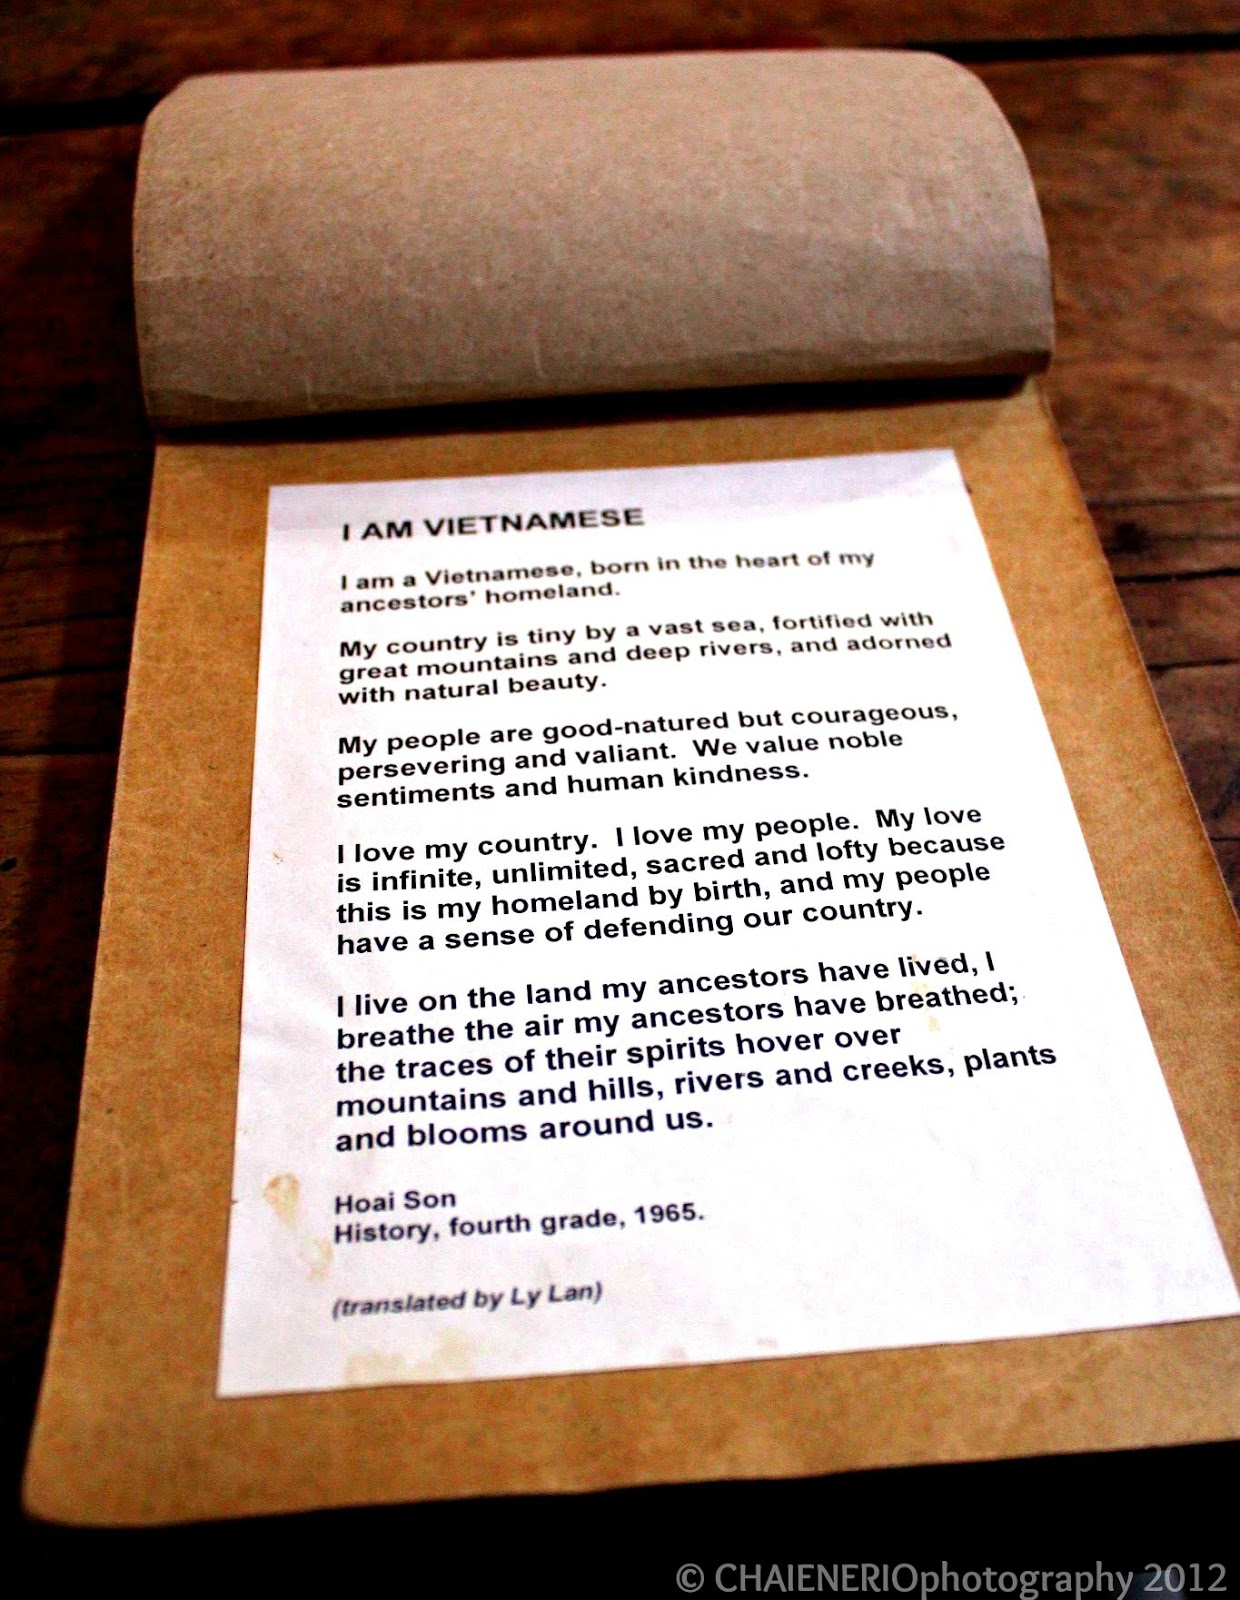 I AM VIETNAMESE
I am a Vietnamese, born in the heart of my
ancestors' homeland.
My country is tiny by a vast sea, fortified with
great mountains and deep rivers, and adorned
with natural beauty.
My people are good-natured but courageous,
persevering and valiant.  We value noble
sentiments and human kindness.
I love my country.  I love my people.  My love
is infinite, unlimited, sacred and lofty because
this is my homeland by birth, and my people
have a sense of defending our country.
I live on the land my ancestors have lived, I
breathe the air my ancestors have breathed;
the traces of their spirits hover over
mountains and hills, rivers and creeks, plants
and blooms around us.
Hoai Son
History, fourth grade, 1965.
(translated by Ly Lan)
© CHAIENERIOphotography 2012